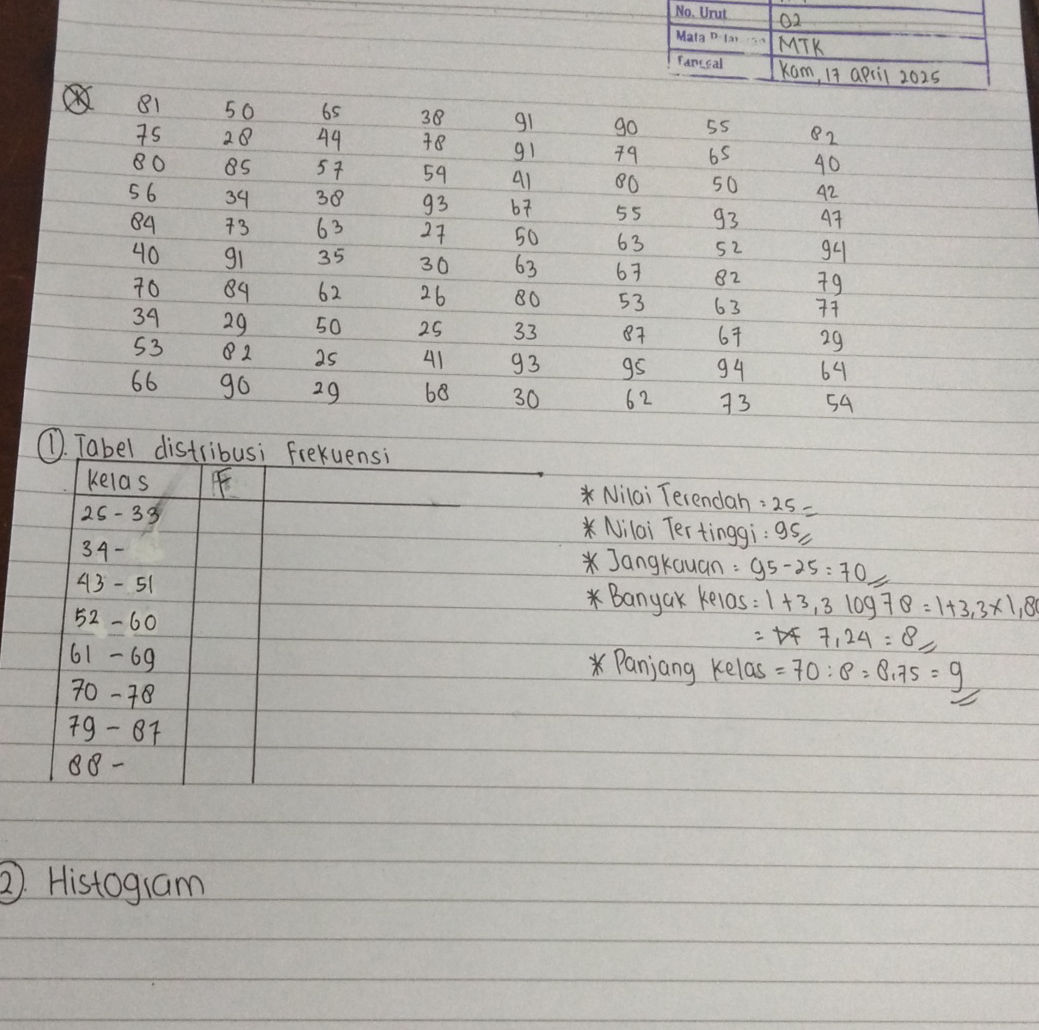 No. Urut 02
Mata MTK
Kam, 17 april 2025
81 50 65 38 91 90 55 82
75 28 44 78 91 79 65 40
80 85 57 59 41 80 50 42
56 34 38 93 67 55 93 47
84 73 63 27 50 63 52 94
40 91 35 30 63 67 82 79
70 84 62 26 80 53 63 77
39 29 50 25 33 87 67 29
53 82 25 41 93 95 94 64
66 90 29 68 30 62 73 54
①. Tabel distribusi frekuensi
Kelas F
25 - 33
34 -
43 - 51
52 - 60
61 - 69
70 - 78
79 - 87
88 -
* Nilai Terendah : 25
* Nilai Tertinggi : 95
* Jangkauan = 95-25 : 70
* Banyak kelas : 1 + 3,3 log 78 = 1+3,3×1,8
= 7,24 = 8
* Panjang kelas = 70 : 8 = 8,75 = 9
②. Histogram